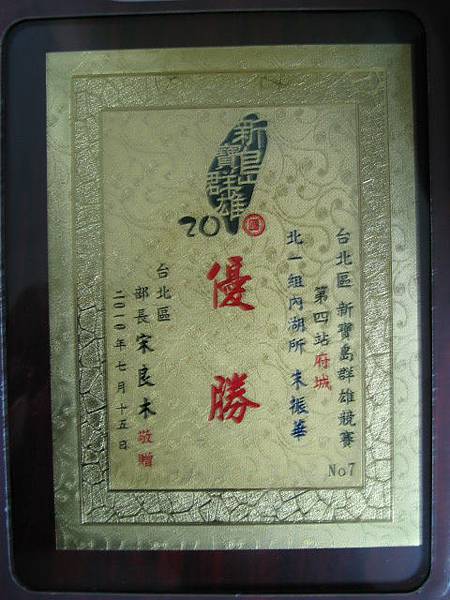 新寶島群雄
台北區 新寶島群雄競賽
第四站府城
北一組內湖所 朱振華
優勝
台北區
部長 宋良木 敬贈
二〇一〇年七月十五日
No7